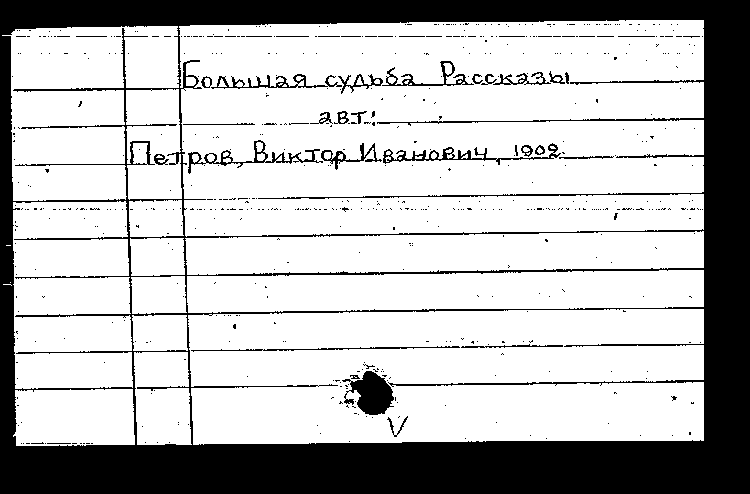 Большая судьба Рассказы
авт:
Петров, Виктор Иванович, 1902
V